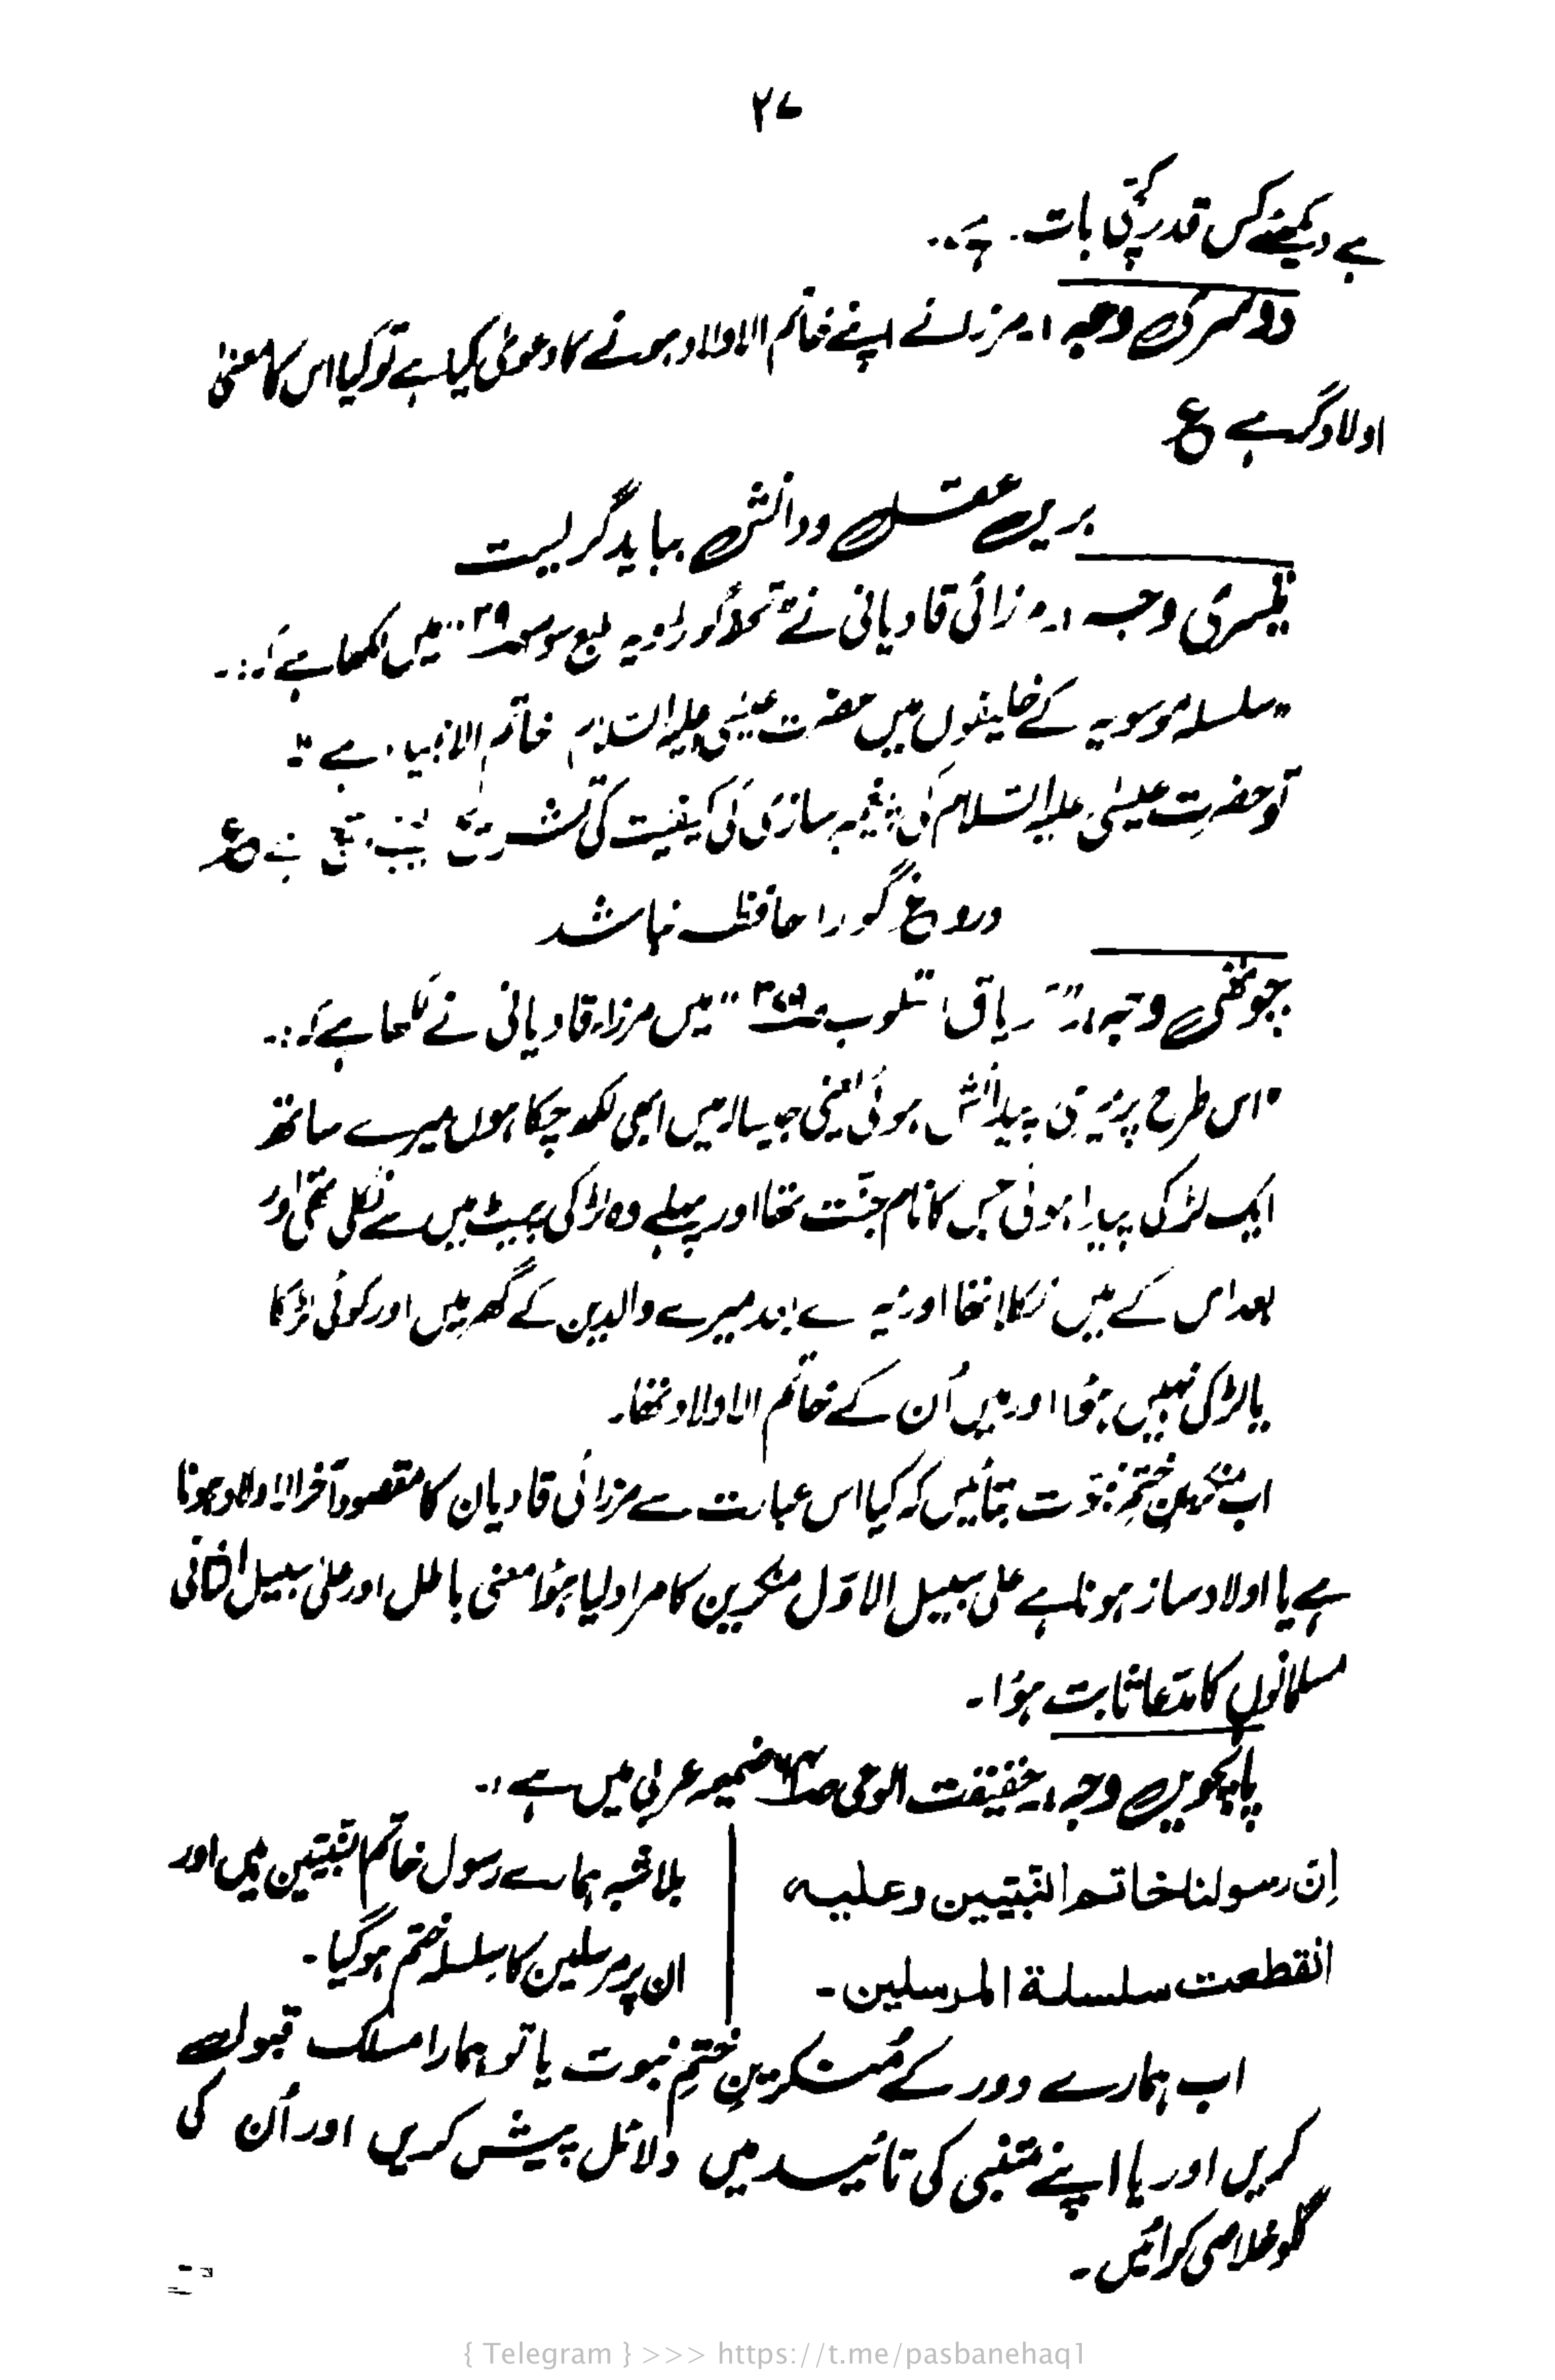 ۲۷
ہے دیکھئے کس قدر پکی بات ہے..
دوسری وجہ :۔ مرزا نے اپنے خاتم الاولاد ہونے کا دعویٰ کیا ہے تو کیا اس کا معنیٰ
اولاد گر ہے ع
بریں عقل و دانش بباید گریست
تیسری وجہ :۔ مرزائی قادیانی نے "تحفہ گولڑویہ طبع سوم ص۳۹" میں لکھا ہے کہ :۔
"سلسلہ موسویہ کے خلیفوں میں حضرت عیسیٰ علیہ السلام خاتم الانبیاء ہے"
تو حضرت عیسیٰ علیہ السلام کی سازی کی کیفیت کی تشریح ع
دروغ گورا حافظہ نباشد
چوتھی وجہ :۔ "تریاق القلوب ص۳۷۹" میں مرزا قادیانی نے لکھا ہے کہ :۔
"اس طرح پر میری پیدائش ہوئی یعنی جیسا کہ میں ابھی لکھ چکا ہوں میرے ساتھ
ایک لڑکی پیدا ہوئی جس کا نام جنّت تھا اور پہلے وہ لڑکی پیٹ میں سے نکلی تھی اور
بعد اس کے میں نکلا تھا اور میرے بعد میرے والدین کے گھر میں اور کوئی لڑکا
یا لڑکی نہیں ہوا اور میں اُن کے خاتم الاولاد تھا۔
اب منکرینِ ختمِ نبوّت بتائیں کہ کیا اس عبارت سے مرزائی قادیان کا مقصود آخر الاولاد ہونا
ہے یا اولاد ساز ہونا ہے علی سبیل الاوّل منکرین کا مراد لیا ہوا معنی باطل اور علی سبیل الثانی
مسلمانوں کا مدّعا ثابت ہوا۔
پانچویں وجہ :۔ حقیقت الوحی ص۶۴ ضمیمہ عربی میں ہے :۔
اِنّ رسولنا خاتم النّبیّین وعلیہ
انقطعت سلسلة المرسلین۔
بلاشبہ ہمارے رسول خاتم النّبیّین ہیں اور
ان پر مرسلین کا سلسلہ ختم ہو گیا۔
اب ہمارے دور کے مُنکرینِ ختمِ نبوت یا تو ہمارا مسلک قبول
کریں اور یا اپنے متنبی کی تائید میں دلائل پیش کریں اور اُن کی
گلو خلاصی کرائیں۔
{ Telegram } >>> https://t.me/pasbanehaq1